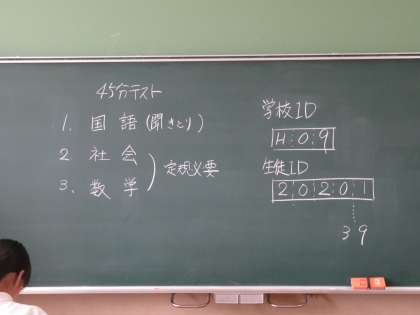 45分テスト
1. 国語(聞きとり)
2 社会
3. 数学
定規必要
学校ID
H09
生徒ID
20201
39